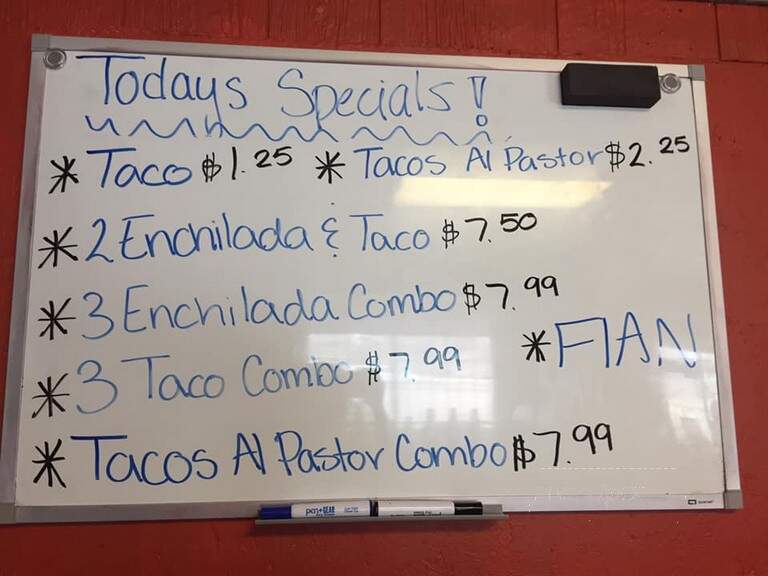 Todays Specials!
* Taco $1.25 * Tacos Al Pastor $2.25
* 2 Enchilada & Taco $7.50
* 3 Enchilada Combo $7.99
* FlAN
* 3 Taco Combo $7.99
* Tacos Al Pastor Combo $7.99
pen+GEAR